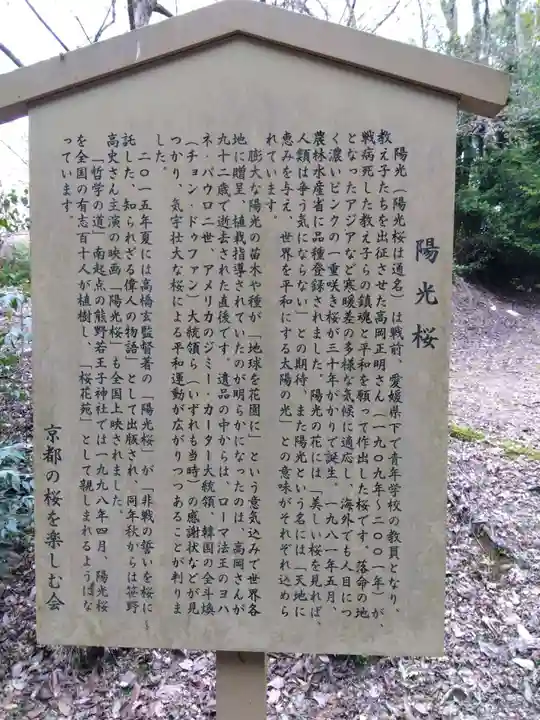 陽光桜
陽光（陽光桜は通名）は戦前、愛媛県下で青年学校の教員となり、
教え子たちを出征させた高岡正明さん（一九〇九年〜二〇〇一年）が、
戦病死した教え子らの鎮魂と平和を願って作出した桜です。落命の地
となったアジアなど寒暖差の多様な気候に適応し、海外でも人目につ
く濃いピンクの一重咲き桜が三十年がかりで誕生、一九八一年五月、
農林水産省に品種登録されました。陽光の花には「美しい桜を見れば、
人類は争う気にならない」との期待、また陽光という名には「天地に
恵みを与え、世界を平和にする太陽の光」との意味がそれぞれ込めら
れています。
膨大な陽光の苗木や種が、「地球を花園に」という意気込みで世界各
地に贈呈、植栽指導されていたのが明らかになったのは、高岡さんが
九十二歳で逝去された直後です。遺品の中からは、ローマ法王のヨハ
ネ・パウロ二世、アメリカのジミー・カーター大統領、韓国の全斗煥
（チョン・ドゥファン）大統領ら（いずれも当時）の感謝状などが見
つかり、気宇壮大な桜による平和運動が広がりつつあることが判りま
した。
二〇一五年夏には高橋玄監督著の「陽光桜」が「非戦の誓いを桜に
託した、知られざる偉人の物語」として出版され、同年秋からは笹野
高史さん主演の映画「陽光桜」も全国上映されました。
「哲学の道」南起点の熊野若王子神社では一九九八年四月、陽光桜
を全国の有志百十人が植樹し、「桜花苑」として親しまれるようにな
っています。
京都の桜を楽しむ会